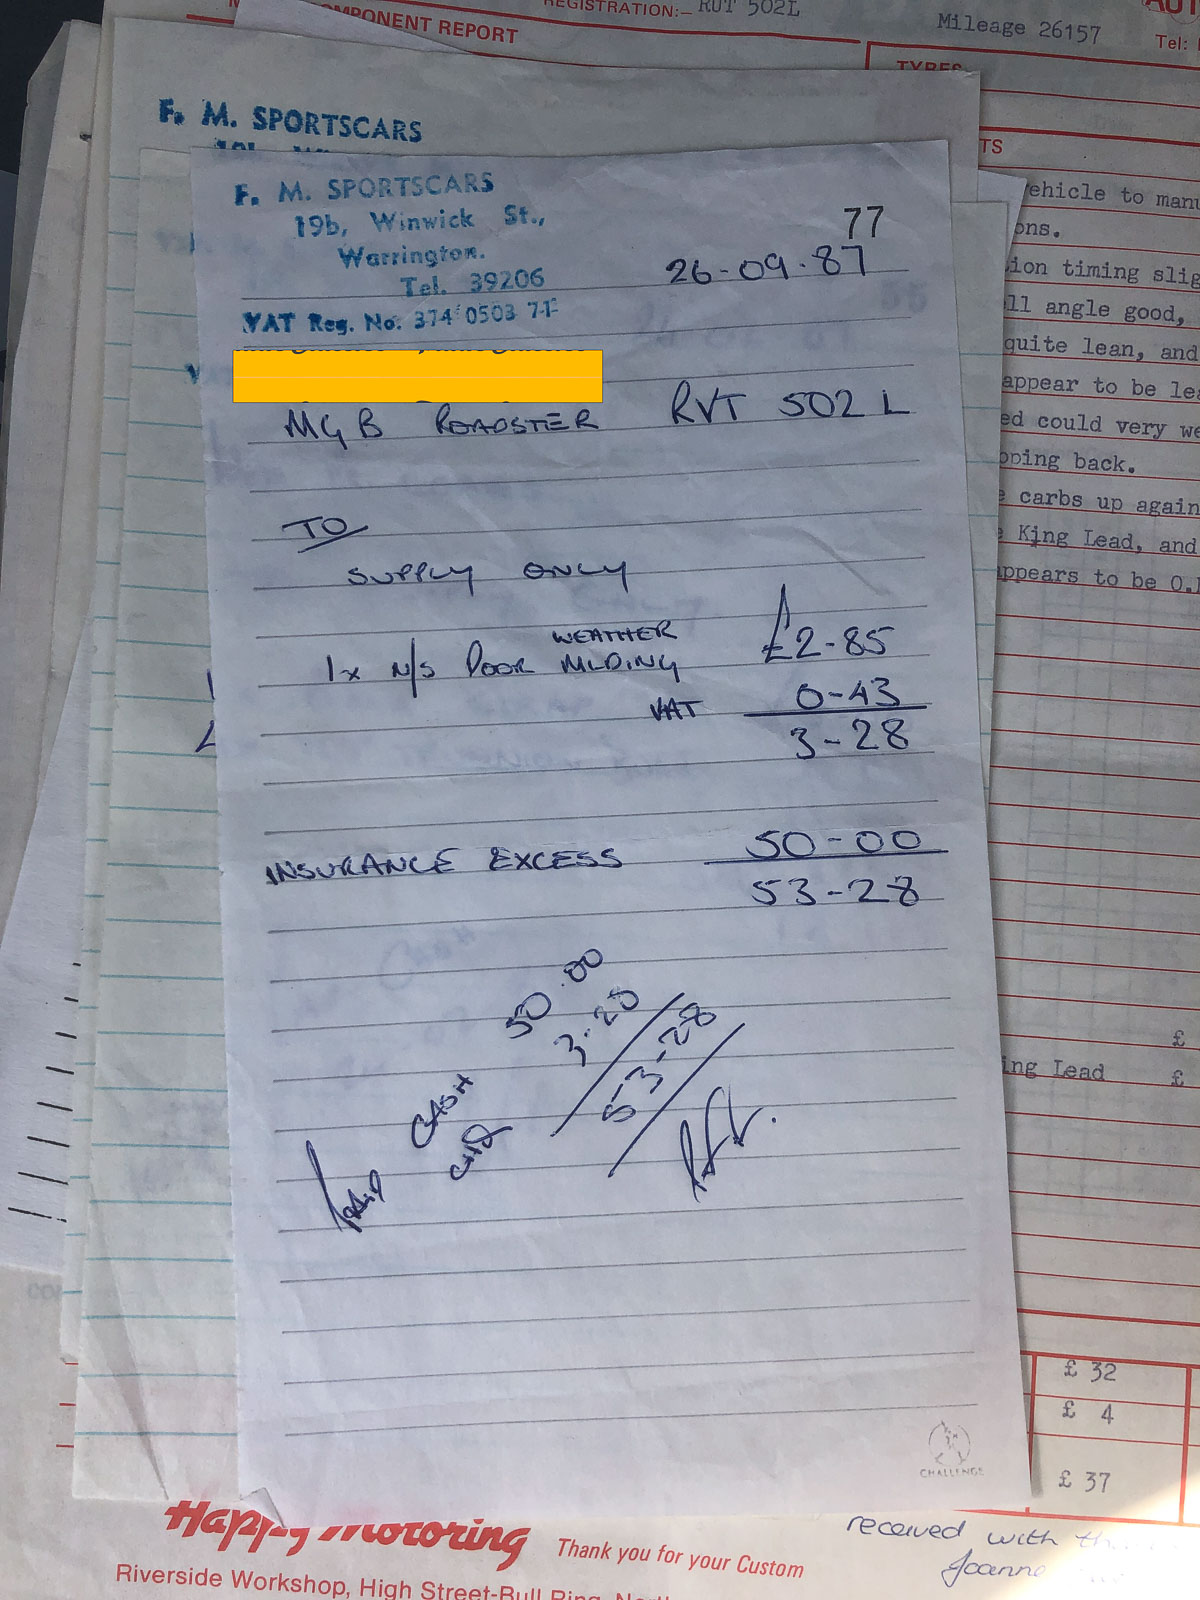 COMPONENT REPORT
REGISTRATION:- RUT 502L
Mileage 26157
AUT
Tel:
TYRES
F. M. SPORTSCARS
F. M. SPORTSCARS
19b, Winwick St.,
Warrington.
Tel. 39206
VAT Reg. No. 374 0503 71
77
26-09-87
MGB ROADSTER RVT 502 L
TO
SUPPLY ONLY
1x N/S DOOR WEATHER MLDING £2-85
VAT 0-43
3-28
INSURANCE EXCESS 50-00
53-28
PAID CASH 50.00
CHQ 3.28
53-28
CHALLENGE
TS
ehicle to manu
ons.
ion timing slig
ll angle good,
quite lean, and
appear to be lea
ed could very we
pping back.
e carbs up again
King Lead, and
ppears to be O.
£
ing Lead £
£ 32
£ 4
£ 37
received with
Joanne
Happy Motoring
Thank you for your Custom
Riverside Workshop, High Street-Bull Ring,